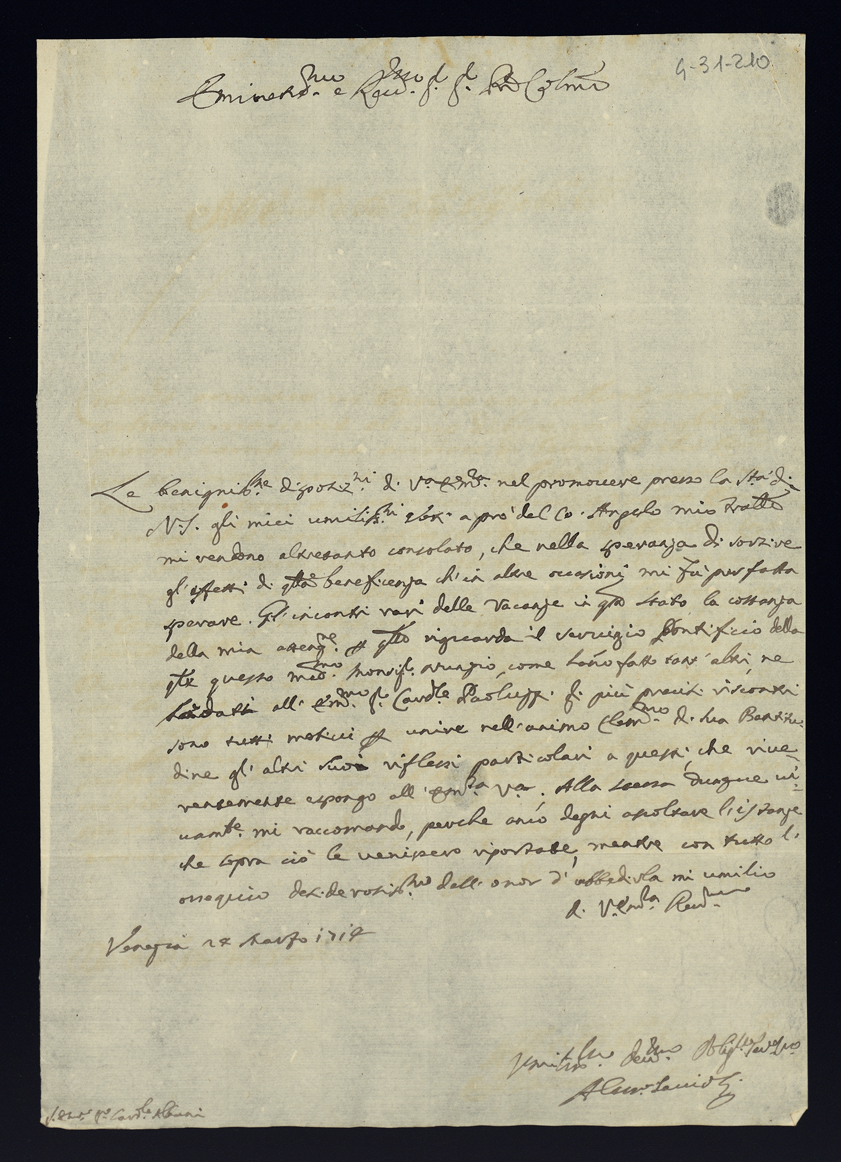 4-31-210
Eminent.mo e Rev.mo S.r S.r
Le benigniss.me disposiz.ni di V.a Em.za nel promovere presso la S.tà di
N. S. gli miei umiliss.mi a prò del Co. Angelo mio Fratello
mi rendono altretanto consolato, che nella speranza di sortire
gl'effetti di beneficenza ch'in altre occasioni mi fù per fatta
sperare. Gl'incontri rari delle vacanze in q.to stato la costanza
della mia riguarda il servizio Pontificio della
q.le questo Monsig.r Nunzio, come hanno fatto tant'altri, ne
all' Em.mo S.r Card.le Paolucci più riscontri
sono tutti motivi unire nell'animo Clem.mo di sua Beatitu-
dine gl'altri suoi riflessi particolari a questi, che rive-
rentemente espongo all' Em.za V.a. Alla stessa dunque vi-
vam.te mi raccomando, perche anco degni ascoltare l'istanze
che sopra ciò le venissero riportate, mentre con tutto l'
ossequio desiderosiss.mo dell'onor d'obbedirla mi umilio
di V. Em.za Rev.ma
Venezia 24 Marzo 1714
Umiliss.mo Dev.mo Oblig.mo Ser.re
S.r Card.le Albani